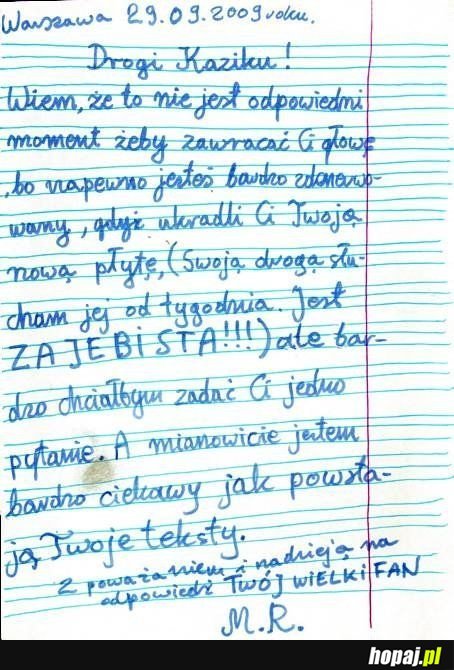 Warszawa 29.09.2009 roku.
Drogi Kaziku!
Wiem, że to nie jest odpowiedni
moment żeby zawracać Ci głowę
, bo napewno jesteś bardzo zdenerwo-
wany, gdyż ukradli Ci Twoją
nową płytę, (Swoją drogą słu-
cham jej od tygodnia. Jest
ZAJEBISTA!!!) ale bar-
dzo chciałbym zadać Ci jedno
pytanie. A mianowicie jestem
bardzo ciekawy jak powsta-
ją Twoje teksty.
Z poważaniem i nadzieją na
odpowiedź TWÓJ WIELKI FAN
M.R.
hopaj.pl